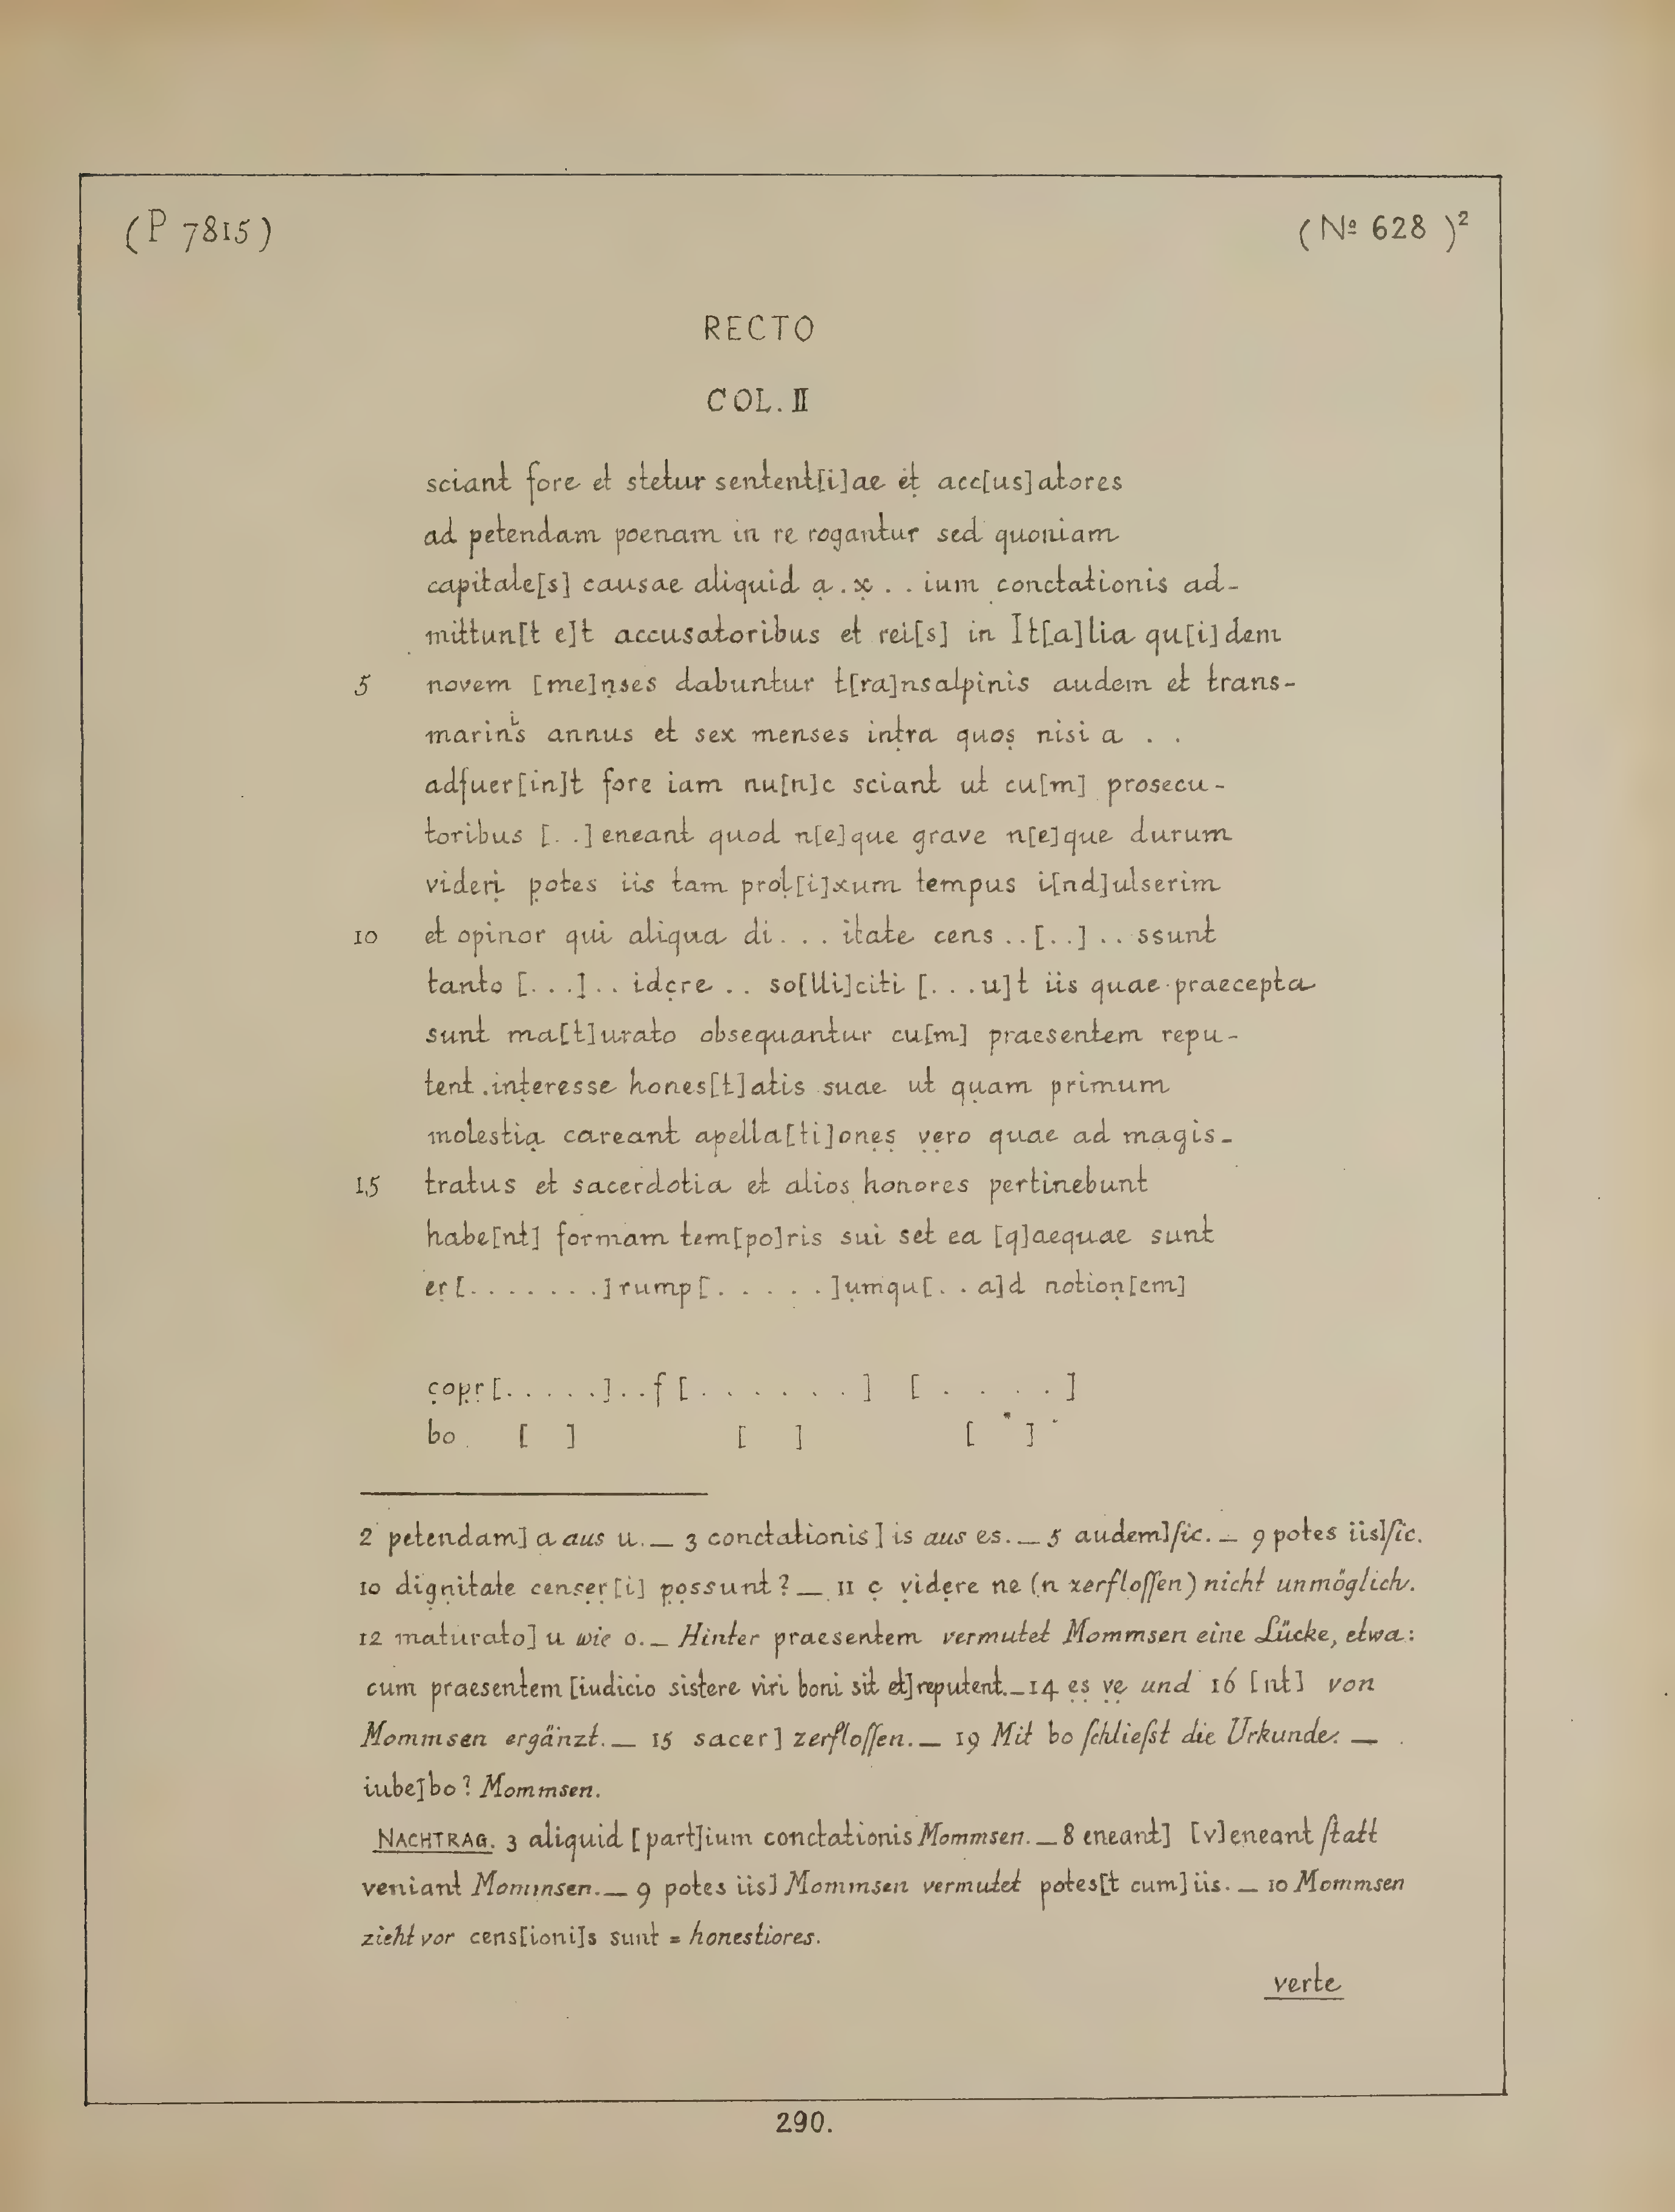 (P 7815)
(Nº 628)²
RECTO
COL. II
sciant fore et stetur sentent[i]ae ẹt acc[us]atores
ad petendam poenam in re rogantur sed quoniam
capitale[s] causae aliquid ạ . x̣ . . ium conctationis ad-
mittun[t e]t accusatoribus et rei[s] in It[a]lia qu[i]dem
5 novem [me]ṇses dabuntur t[ra]nsalpinis audem et trans-
marin`i´s annus et sex menses inṭra quoṣ nisi a . .
adfuer[in]t fore iam nu[n]c sciant ut cu[m] prosecu-
toribus [. .]eneant quod n[e]que grave n[e]que durum
videṛi p̣otes iis tam prọl[i]xum tempus i[nd]ulserim
10 et opinor qui aliqua di . . . itate cens . . [. .] . . ssunt
tanto [. . .] . . idc̣re . . so[lli]citi [. . . u]t iis quae praecepta
sunt ma[t]urato obsequantur cu[m] praesentem repu-
tent inṭeresse hones[t]atis suae ut qụam primum
molestiạ careant apella[ti]onẹṣ ṿẹro quae ad magis-
15 tratus et sacerdotia et alios honores pertinebunt
habe[nt] formam tem[po]ris sui set ea [q]aequae sunt
eṛ[. . . . . . .]rump[. . . . .]ụmqu[. . a]d notioṇ[em]
c̣op̣ṛ[. . . . .] . . f [. . . . . .] [. . . . .]
bo [ ] [ ] [ ]
2 petendam] a aus u. — 3 conctationis] is aus es. — 5 audem] ſic. — 9 potes iis] ſic.
10 dig̣ṇitate cenṣẹṛ[i] p̣ọssunt? — 11 c̣ ṿidẹre ne (n zerfloſſen) nicht unmöglich.
12 maturato] u wie o. — Hinter praesentem vermutet Mommsen eine Lücke, etwa:
cum praesentem [iudicio sistere viri boni sit et] reputent. — 14 ẹṣ ṿẹ und 16 [nt] von
Mommsen ergänzt. — 15 sacer] zerfloſſen. — 19 Mit bo ſchlieſst die Urkunde. —
iube]bo? Mommsen.
NACHTRAG. 3 aliquid [part]ium conctationis Mommsen. — 8 eneant] [v]eneant ſtatt
veniant Mommsen. — 9 potes iis] Mommsen vermutet potes[t cum] iis. — 10 Mommsen
zieht vor cens[ioni]s sunt = honestiores.
verte
290.